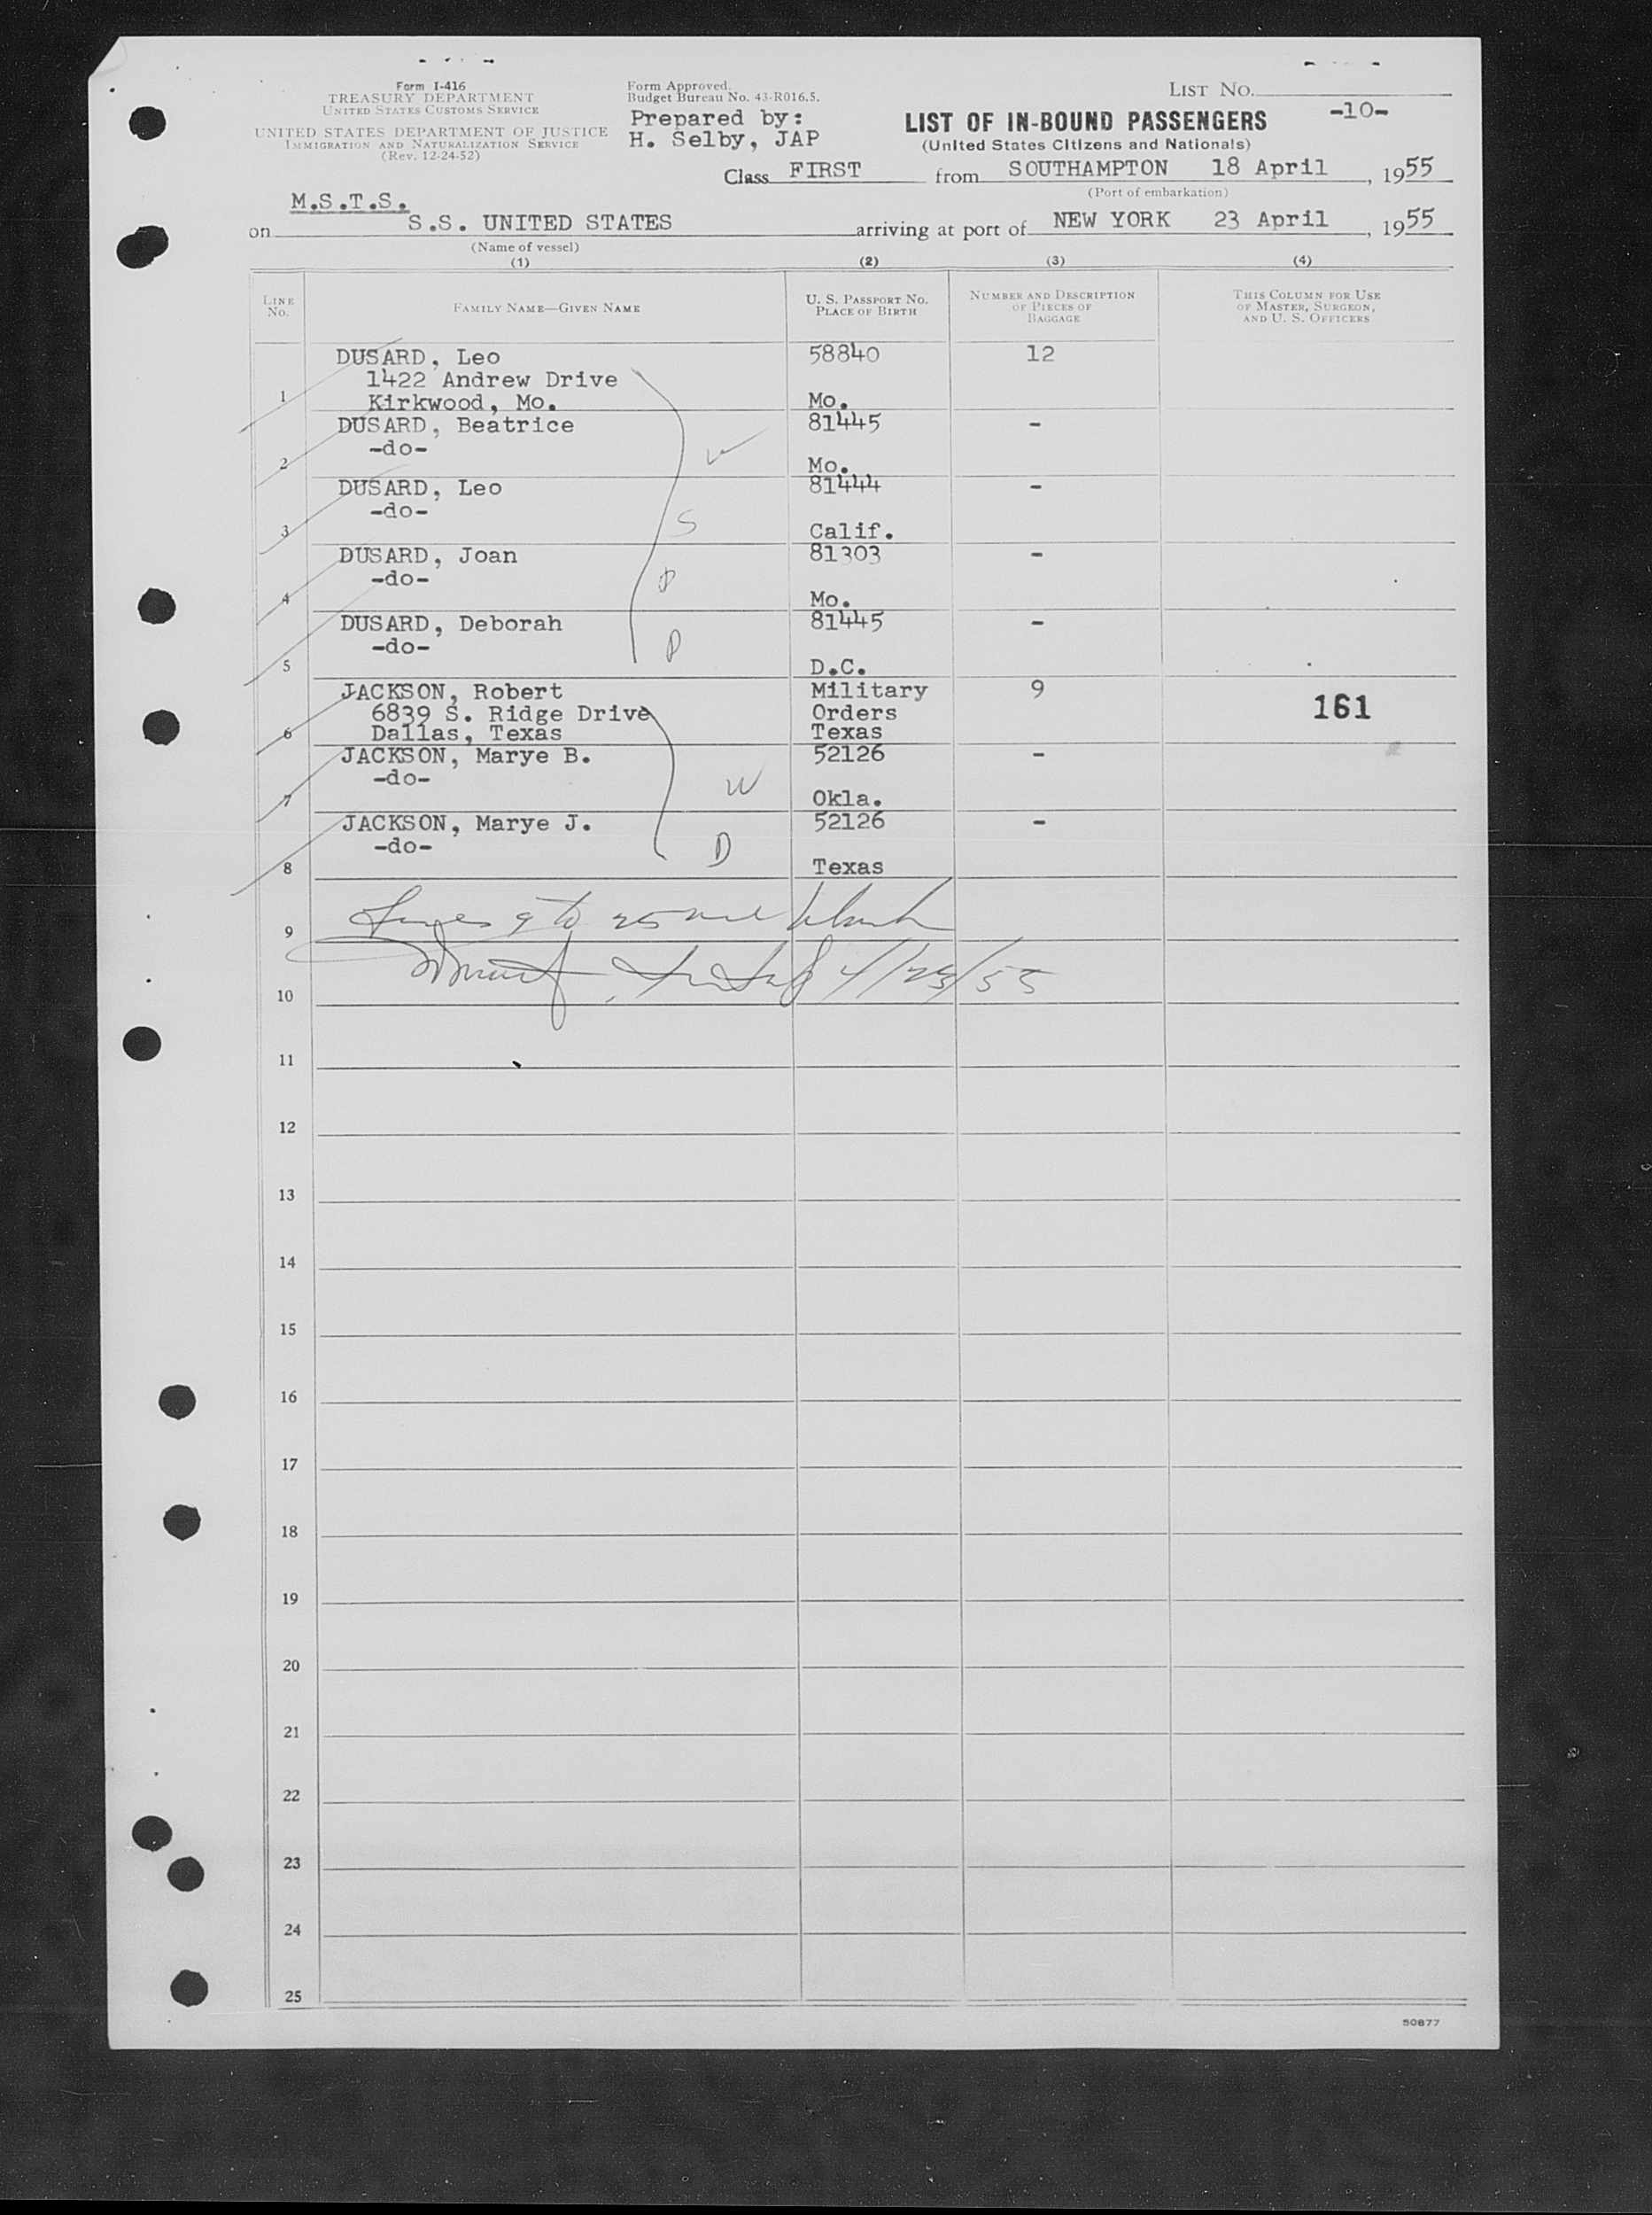 Form I-416
TREASURY DEPARTMENT
UNITED STATES CUSTOMS SERVICE
UNITED STATES DEPARTMENT OF JUSTICE
IMMIGRATION AND NATURALIZATION SERVICE
(Rev. 12-24-52)
Form Approved.
Budget Bureau No. 43-R016.5.
Prepared by:
H. Selby, JAP
LIST NO.
-10-
LIST OF IN-BOUND PASSENGERS
(United States Citizens and Nationals)
Class FIRST from SOUTHAMPTON 18 April, 1955
(Port of embarkation)
M.S.T.S.
on S.S. UNITED STATES arriving at port of NEW YORK 23 April, 1955
(Name of vessel)
(1) (2) (3) (4)
LINE NO.
FAMILY NAME—GIVEN NAME
U. S. PASSPORT NO.
PLACE OF BIRTH
NUMBER AND DESCRIPTION
OF PIECES OF
BAGGAGE
THIS COLUMN FOR USE
OF MASTER, SURGEON,
AND U. S. OFFICERS
DUSARD, Leo 58840 12
1422 Andrew Drive
1 Kirkwood, Mo. Mo.
DUSARD, Beatrice 81445 -
-do-
2 Mo.
DUSARD, Leo 81444 -
-do- S
3 Calif.
DUSARD, Joan 81303 -
-do- D
4 Mo.
DUSARD, Deborah 81445 -
-do- D
5 D.C.
JACKSON, Robert Military 9
6839 S. Ridge Drive Orders 161
6 Dallas, Texas Texas
JACKSON, Marye B. 52126 -
-do- W
7 Okla.
JACKSON, Marye J. 52126 -
-do- D
8 Texas
9 Lines 9 to 25 are blank
10 4/23/55
11
12
13
14
15
16
17
18
19
20
21
22
23
24
25
50877